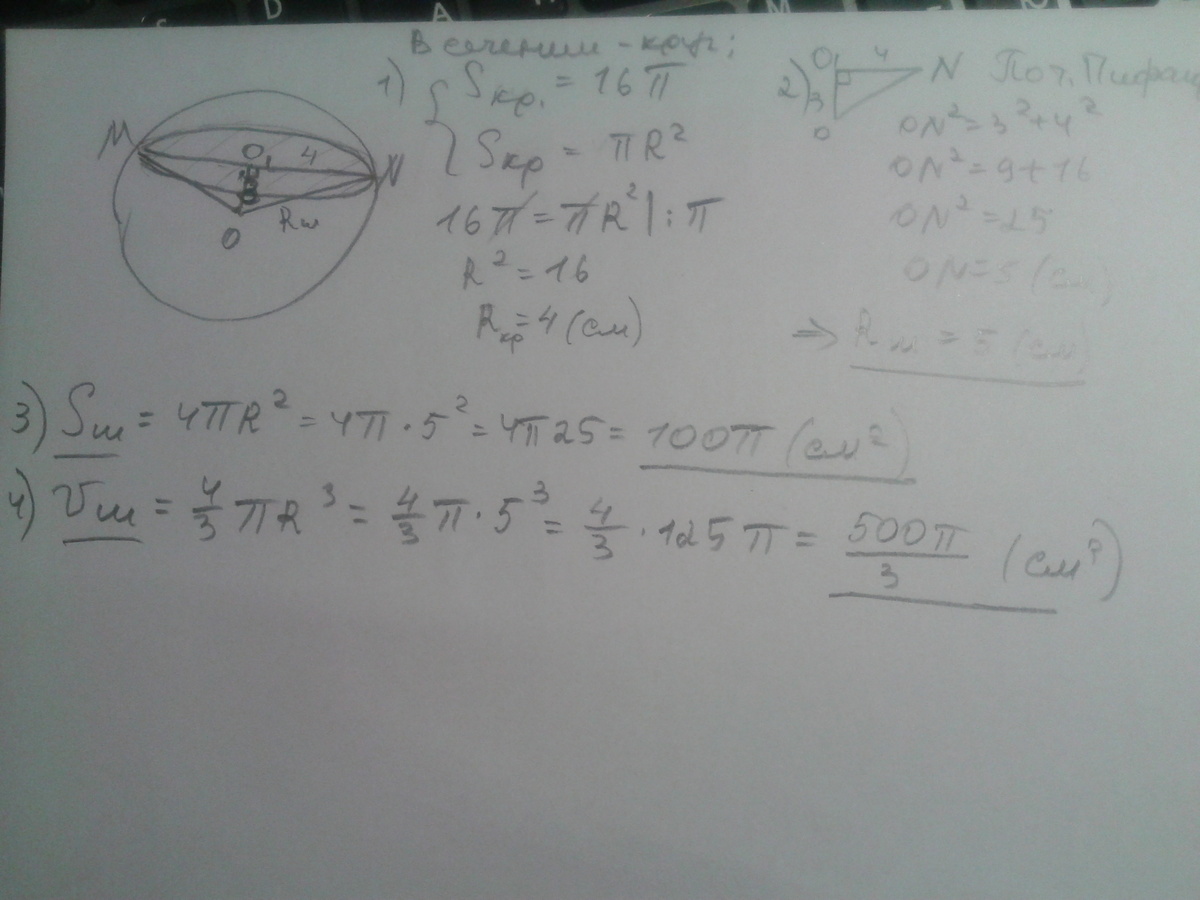 В сечении - круг;
1) { Sкр. = 16π
Sкр = πR²
16π = πR² | : π
R² = 16
Rкр = 4 (см)
M
O₁
4
N
Rш
O
2)
O
4
N
3
O
По т. Пифаг
ON² = 3² + 4²
ON² = 9 + 16
ON² = 25
ON = 5 (см)
⇒ Rш = 5 (см)
3) Sш = 4πR² = 4π · 5² = 4π25 = 100π (см²)
4) Vш = 4/3 πR³ = 4/3 π · 5³ = 4/3 · 125π = 500π/3 (см³)
D
A
M